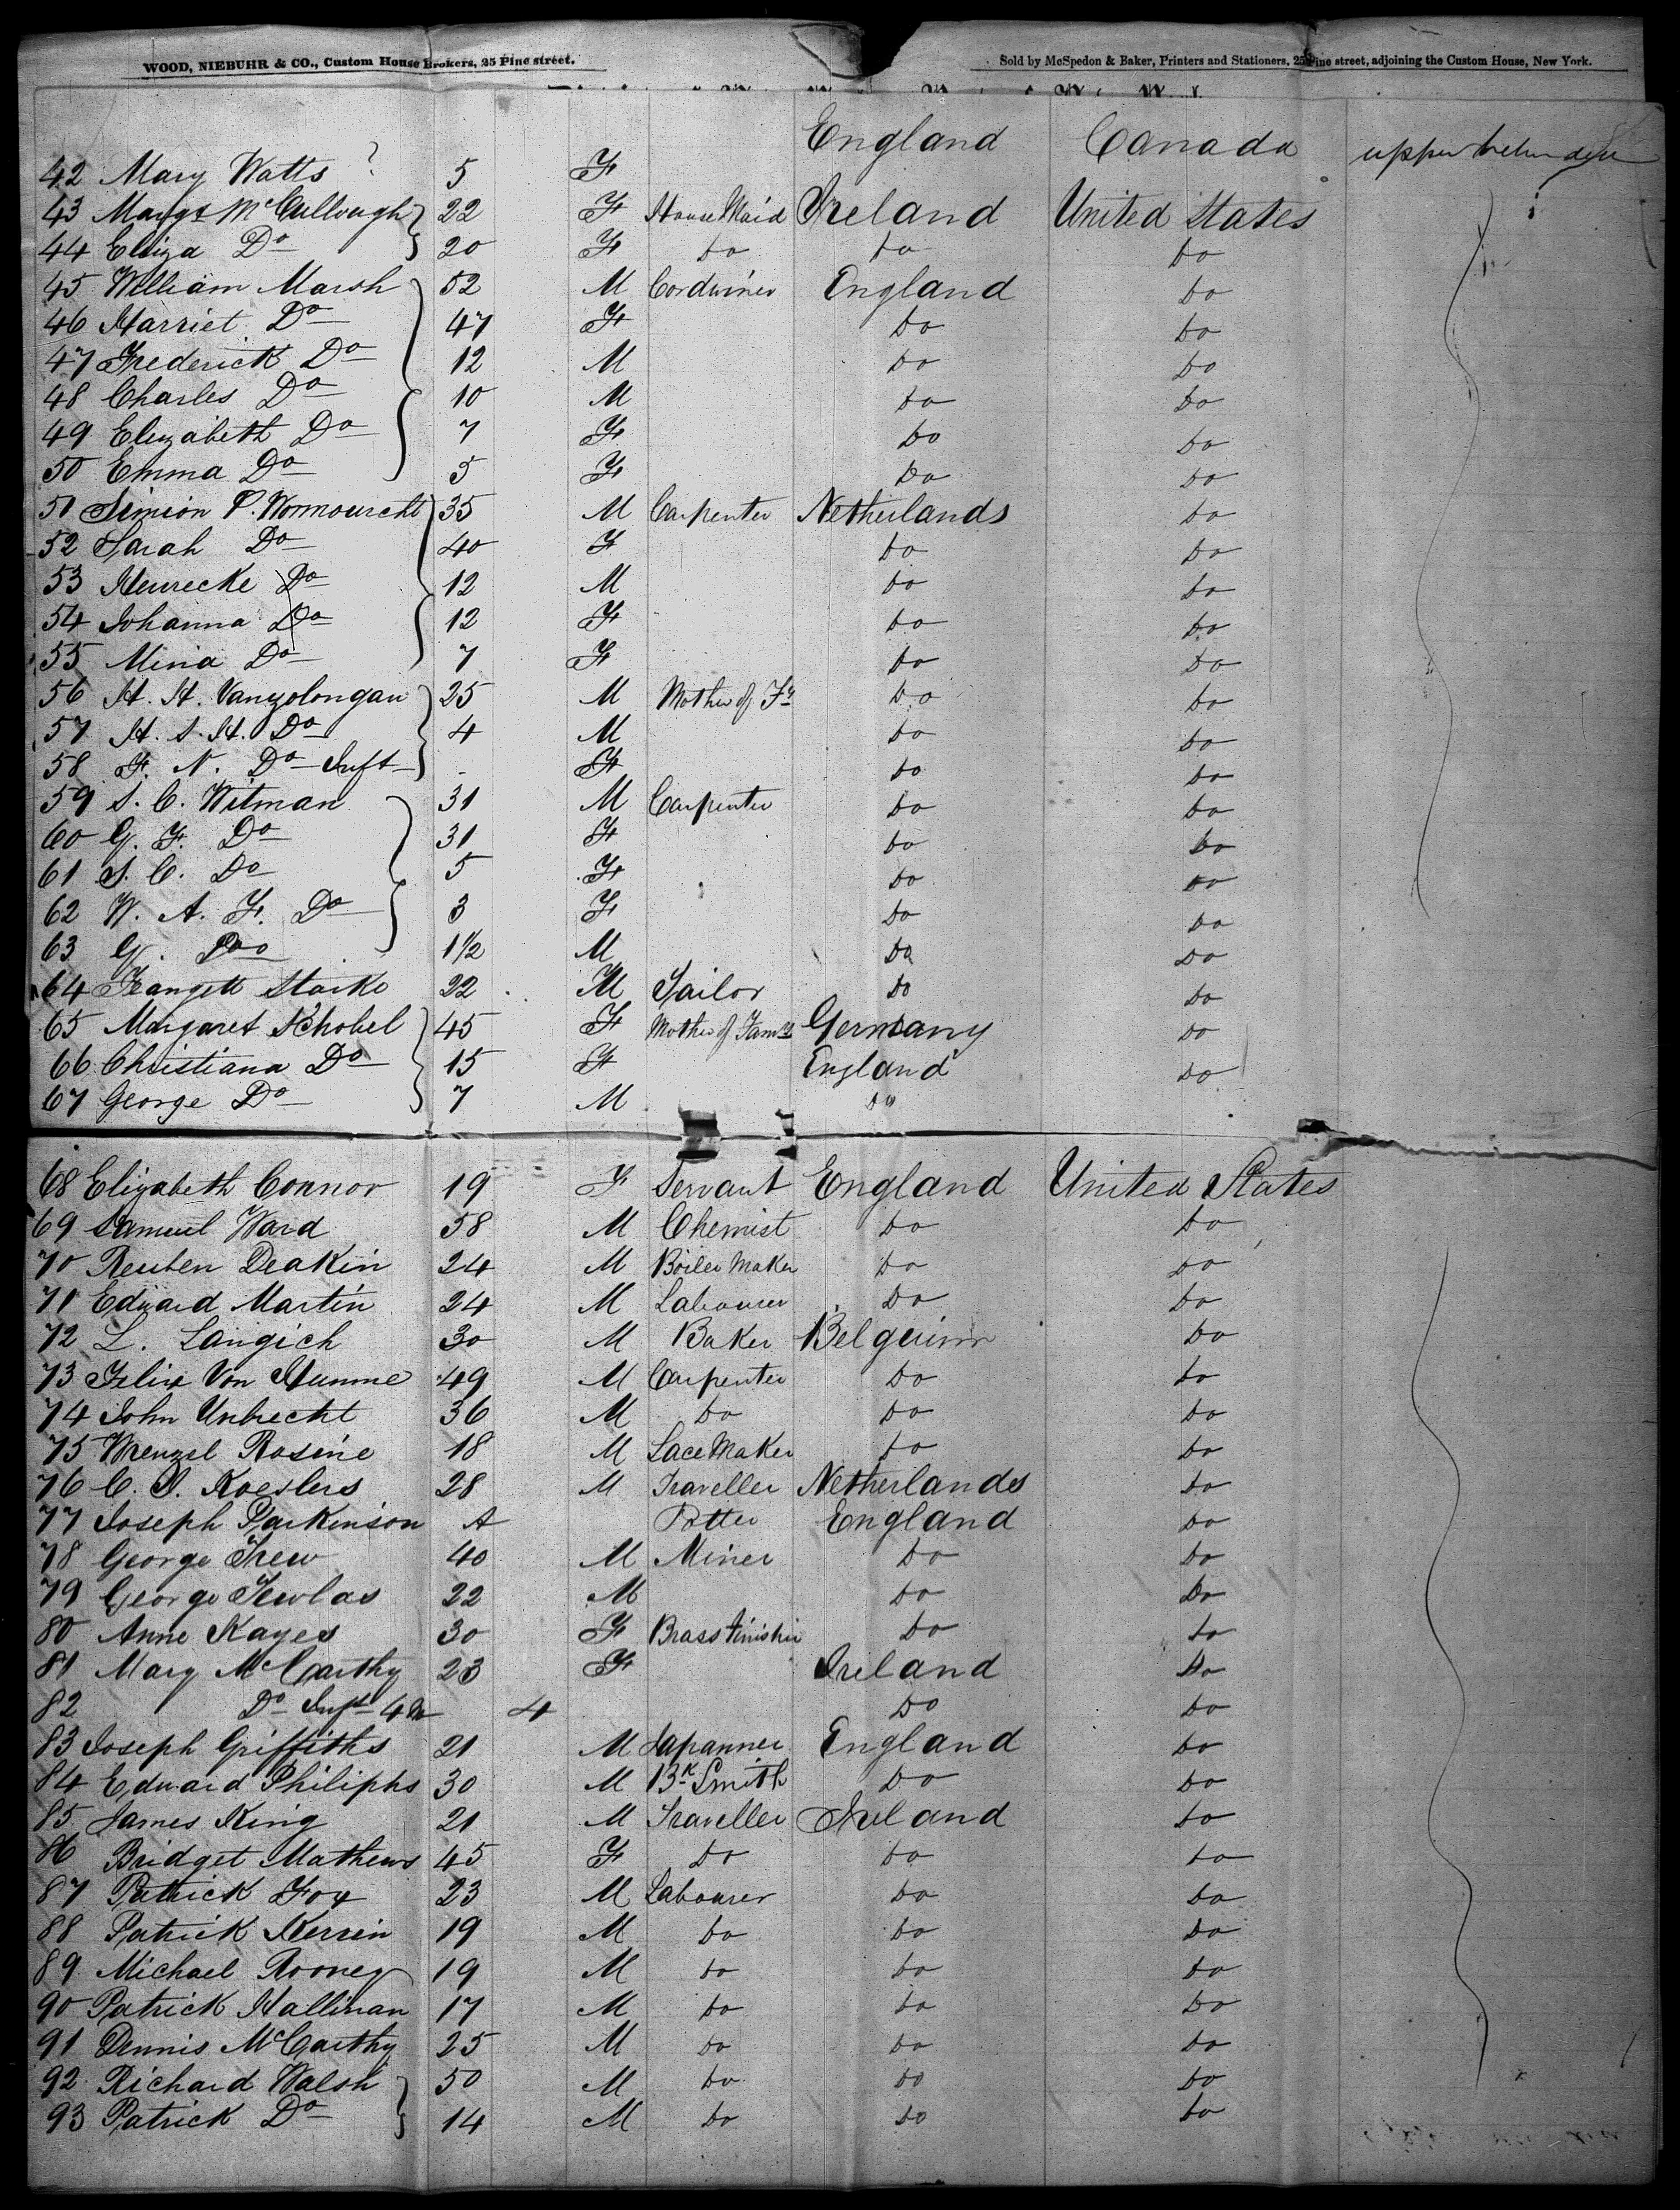 WOOD, NIEBUHR & CO., Custom House Brokers, 25 Pine street. Sold by McSpedon & Baker, Printers and Stationers, 25 Pine street, adjoining the Custom House, New York.
42 Mary Watts ? 5 F England Canada upper between decks
43 Margt McCullough 22 F House Maid Ireland United States
44 Eliza Do 20 F Do Do Do
45 William Marsh 52 M Cordwiner England Do
46 Harriet Do 47 F Do Do
47 Frederick Do 12 M Do Do
48 Charles Do 10 M Do Do
49 Elizabeth Do 7 F Do Do
50 Emma Do 5 F Do Do
51 Simion P. 35 M Carpenter Netherlands Do
52 Sarah Do 40 F Do Do
53 Henrecke Do 12 M Do Do
54 Johanna Do 12 F Do Do
55 Mina Do 7 F Do Do
56 H. H. Vanzolongan 25 M Mother of Fy Do Do
57 H. S. H. Do 4 M Do Do
58 F. N. Do Inft F Do Do
59 S. C. Witman 31 M Carpenter Do Do
60 G. F. Do 31 F Do Do
61 S. C. Do 5 F Do Do
62 W. A. F. Do 3 F Do Do
63 G. Do 1 1/2 M Do Do
64 Starke 22 M Sailor Do Do
65 Margaret Schobel 45 F Mother of Famy Germany Do
66 Christiana Do 15 F England Do
67 George Do 7 M Do
68 Elizabeth Connor 19 F Servant England United States
69 Samuel Ward 58 M Chemist Do Do
70 Reuben Deakin 24 M Boiler Maker Do Do
71 Edward Martin 24 M Labourer Do Do
72 L. Langich 30 M Baker Belguim Do
73 Felix Von Humme 49 M Carpenter Do Do
74 John Unbrecht 36 M Do Do Do
75 Wenzel Rosine 18 M Lace Maker Do Do
76 C. S. Koeslers 28 M Traveller Netherlands Do
77 Joseph Parkinson A Potter England Do
78 George Trew 40 M Miner Do Do
79 George Tewlas 22 M Do Do
80 Anne Kayes 30 F Brass finisher Do Do
81 Mary McCarthy 23 F Ireland Do
82 Do Inft 4 m 4 Do Do
83 Joseph Griffiths 21 M Japanner England Do
84 Edward Philiphs 30 M Bk Smith Do Do
85 James King 21 M Traveller Ireland Do
86 Bridget Mathews 45 F Do Do Do
87 Patrick Foy 23 M Labourer Do Do
88 Patrick Kerrin 19 M Do Do Do
89 Michael Rooney 19 M Do Do Do
90 Patrick Hallinan 17 M Do Do Do
91 Dennis McCarthy 25 M Do Do Do
92 Richard Walsh 50 M Do Do Do
93 Patrick Do 14 M Do Do Do